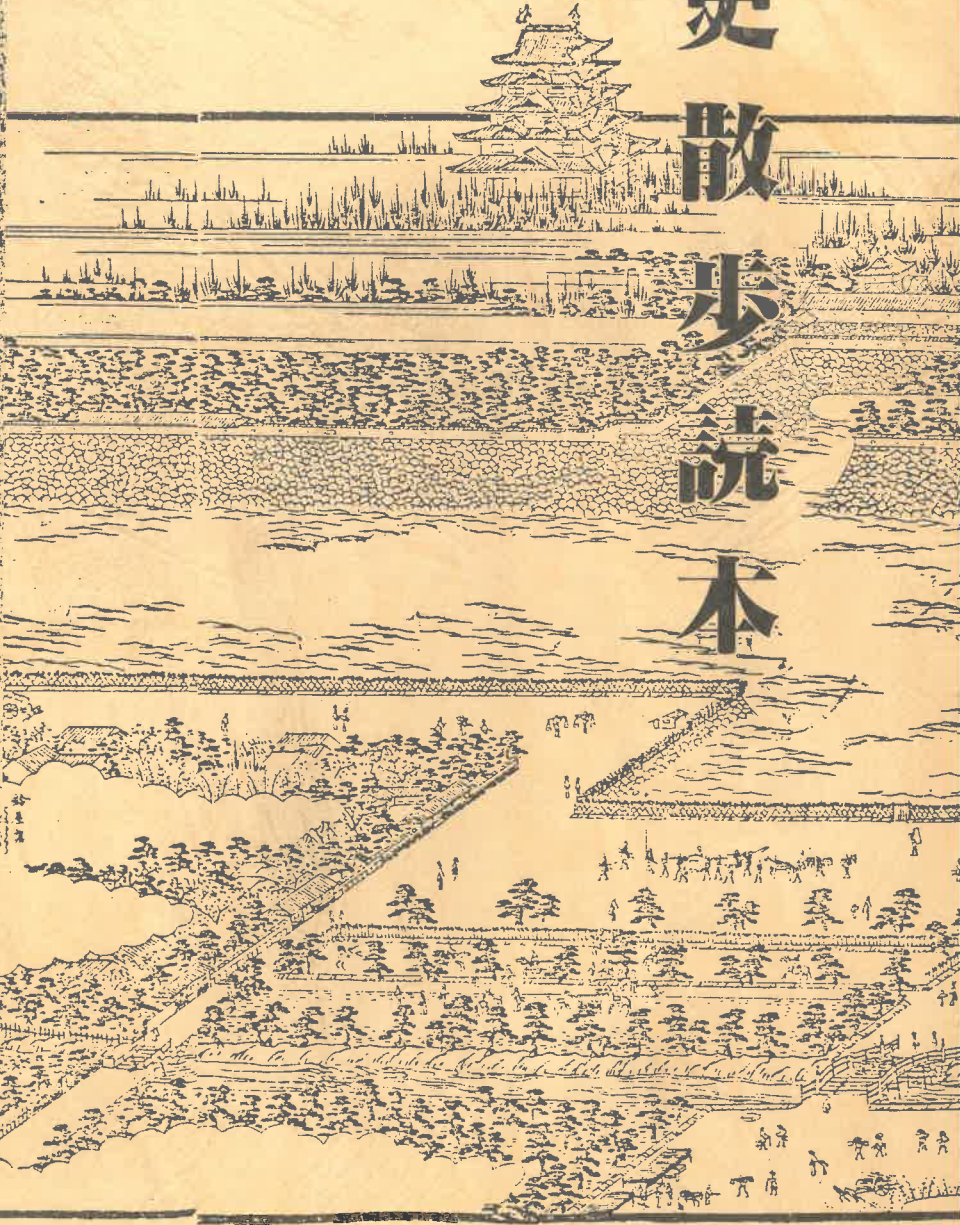 史散歩読本